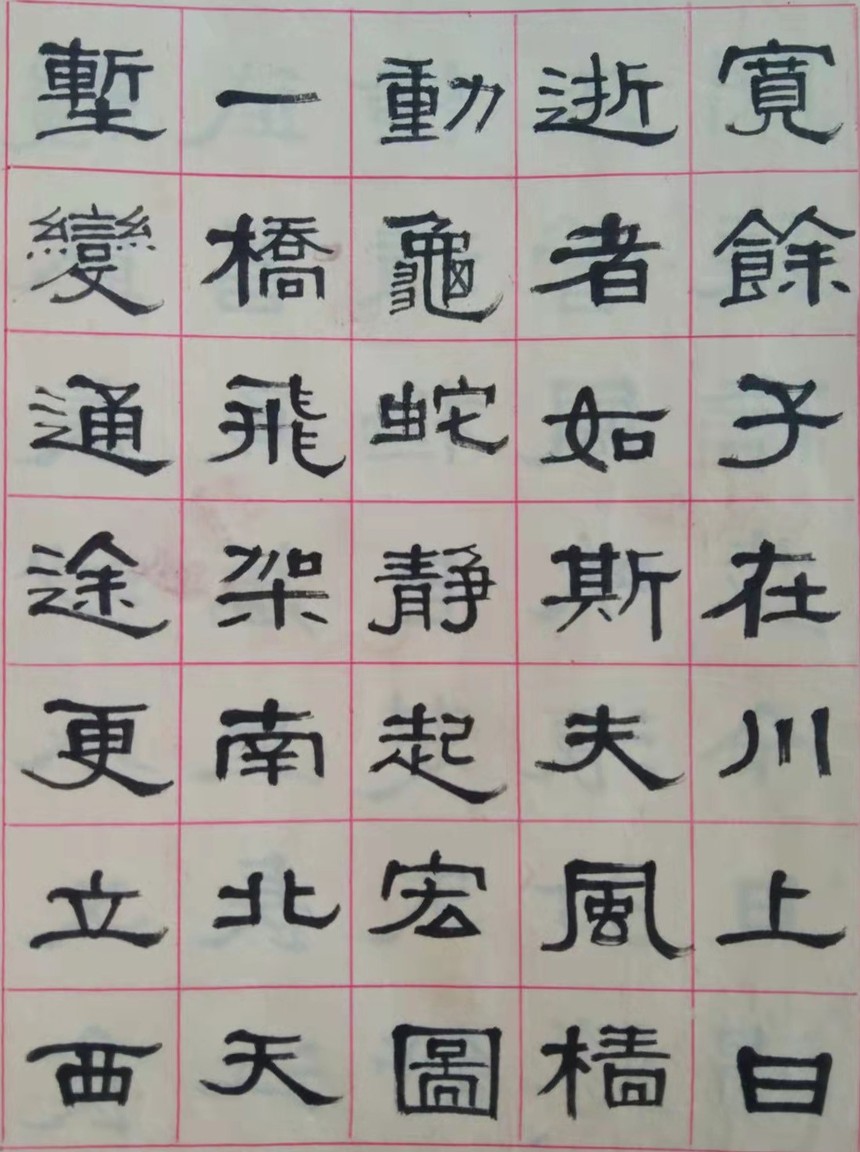 寬餘子在川上曰
逝者如斯夫風檣
動龜蛇静起宏圖
一橋飛架南北天
塹變通途更立西